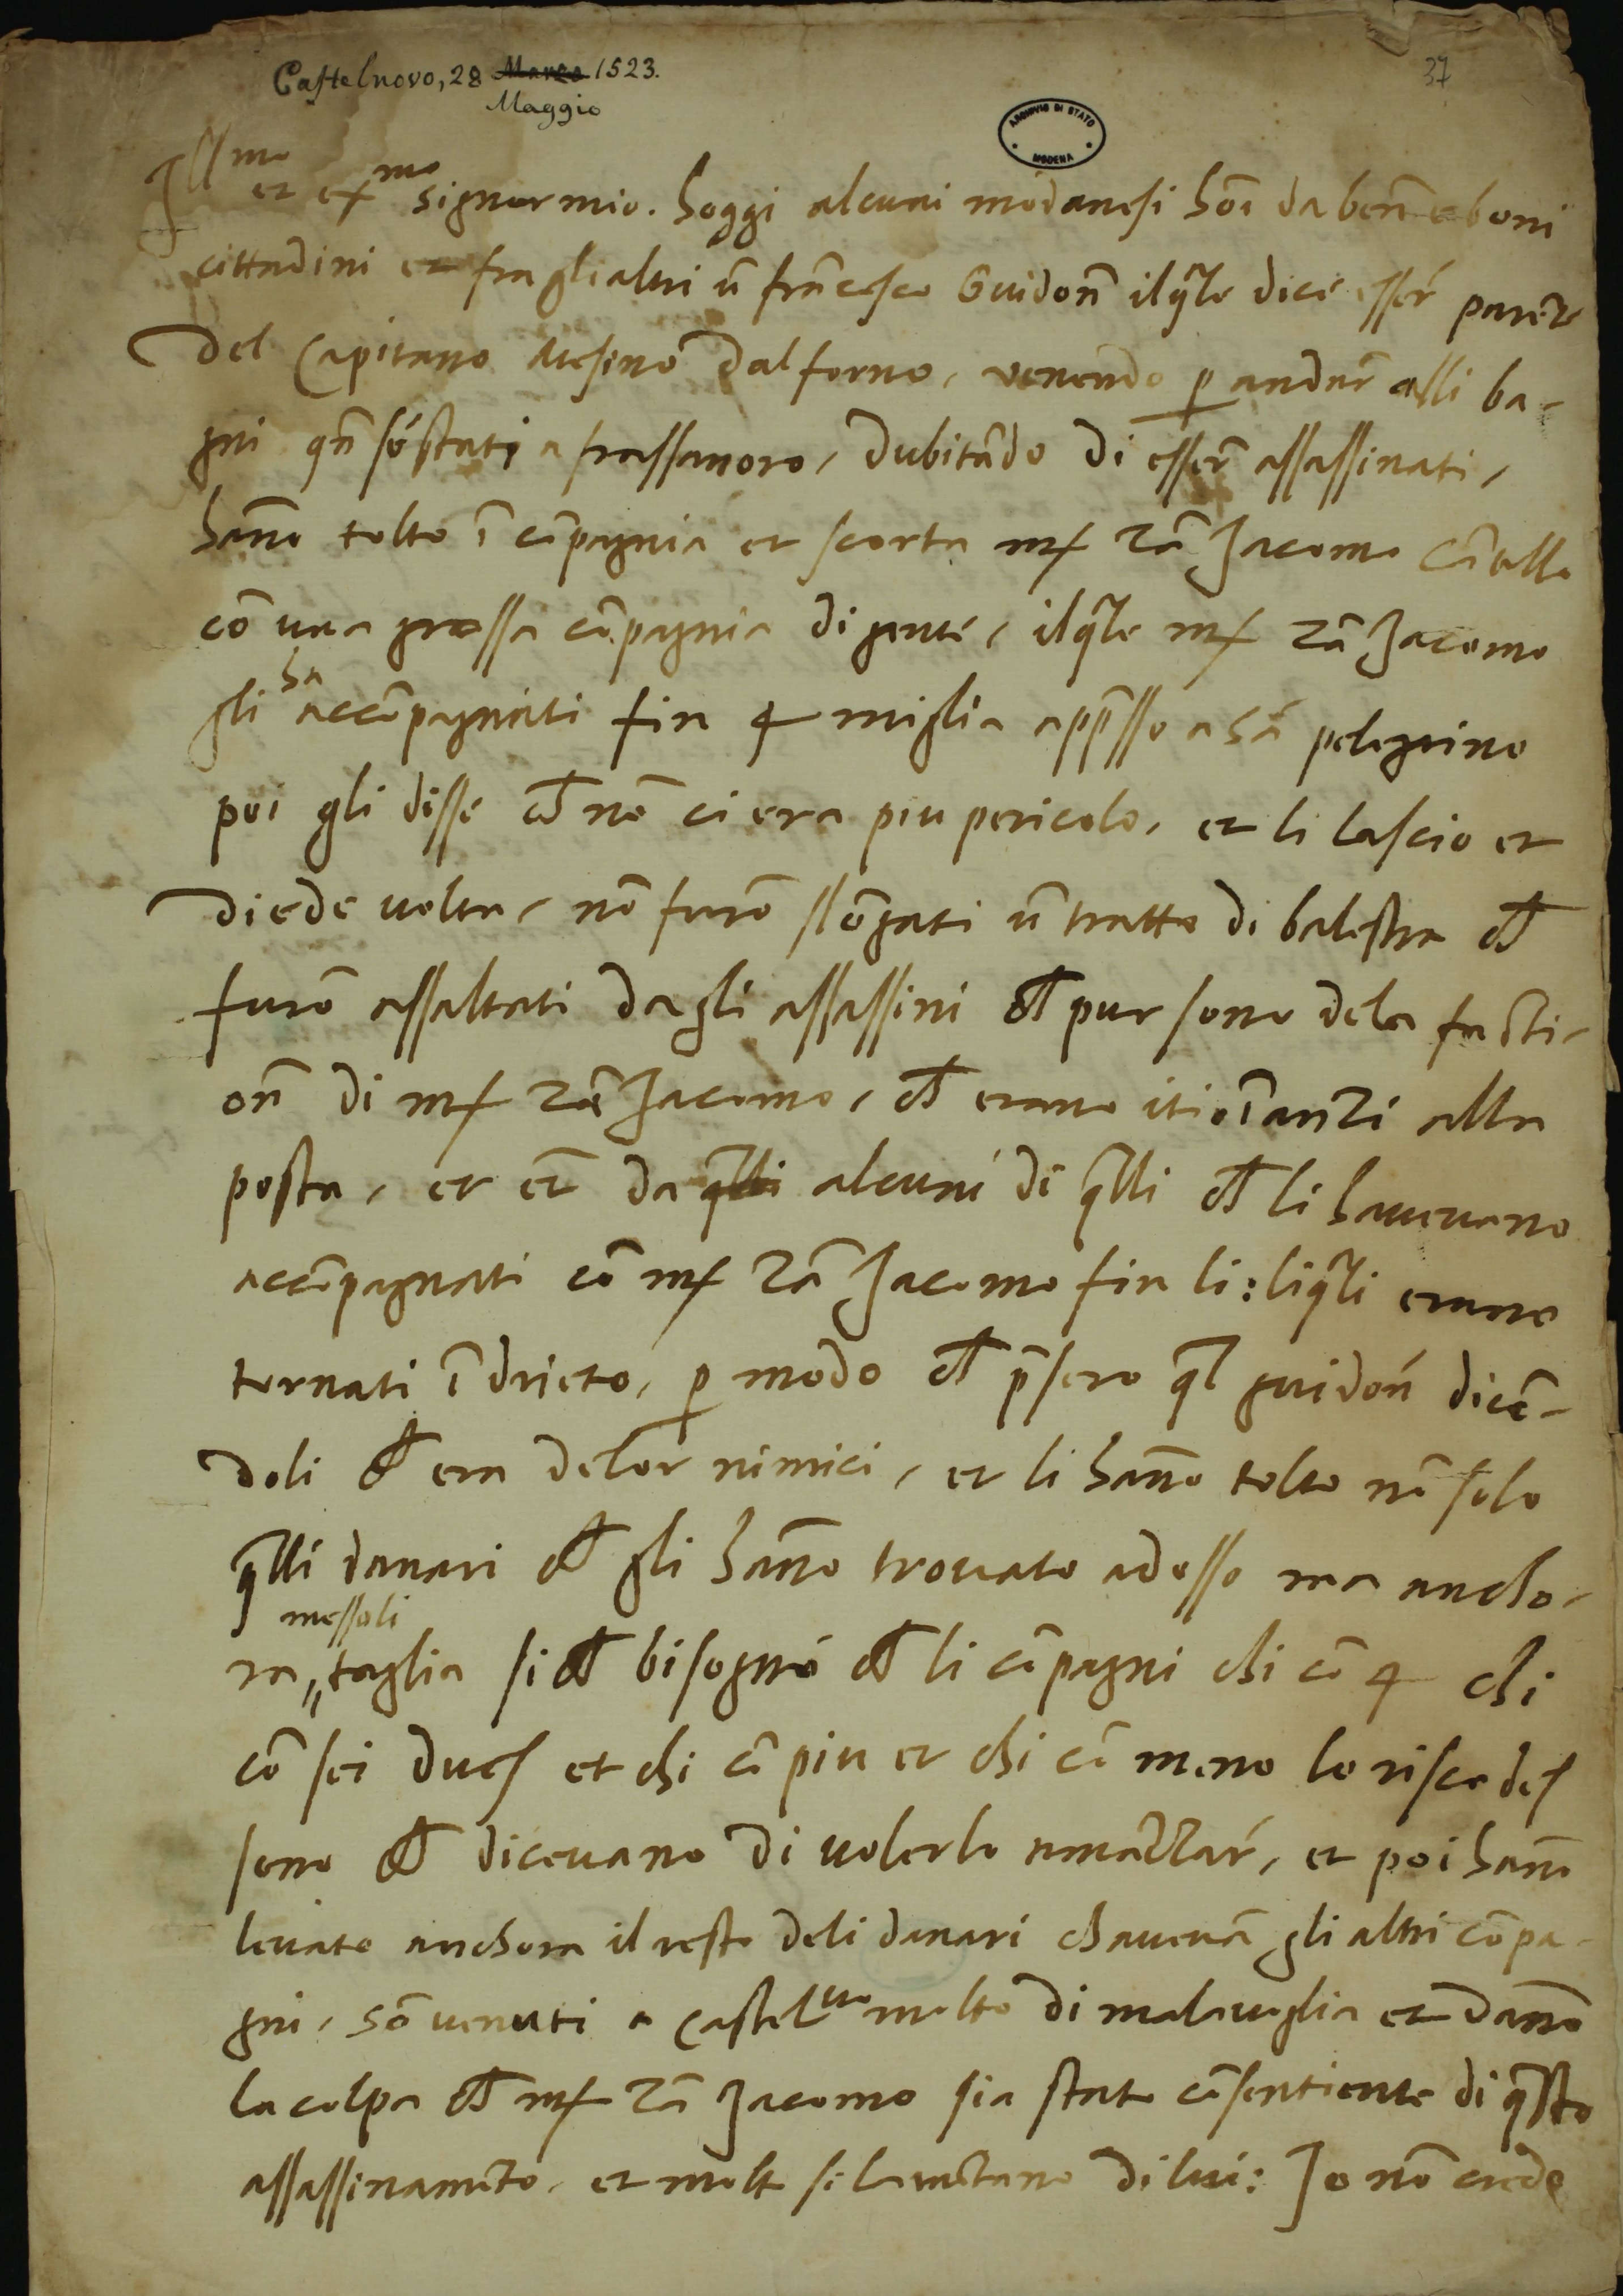 Castelnovo, 28 Marzo 1523.
Maggio
37
ARCHIVIO DI STATO
MODENA
Ill^mo et ex^mo signor mio. hoggi alcuni modanesi hoı̄ da ben̄ e boni
cittadini et fra glialtri ū frācesco Guidon̄ ilq̄le dice esser̄ parēte
del Capitano Mesino dal forno, venendo p̱ andar̄ alli ba-
gni qn̄ sō stati a frassanoro, dubitādo di esser̄ assassinati,
hān̄o tolto ī cōpagnia et scorta mſ zā Jacomo Cātello
cō una grossa cōpagnia di gente, ilq̄le mſ zā Jacomo
gli ha accōpagnati fin 4 miglia app̄sso a sā pelegrino
poi gli disse ch̄ nō ci era piu pericolo, et li lascio et
diede volta, nō furō slōgati ū tratto di balestra ch̄
furō assaltati dagli assassini ch̄ pur sono dela facti-
on̄ di mſ zā Jacomo, ch̄ erano iti īanzi alla
posta, et et̄ da q̄lli alcuni di q̄lli ch̄ li havevano
accōpagnati cō mſ zā Jacomo fin li: liq̄li erano
tornati ī drieto, p̱ modo ch̄ p̄sero q̄l guidon̄ dicē-
doli ch̄ era delor nimici, et li hān̄o tolto nō solo
q̄lli danari ch̄ gli hān̄o trovato adosso ma ancho-
messoli
ra taglia si ch̄ bisogno ch̄ li cōpagni chi cō 4 chi
cō sei ducſ et chi cō piu et chi cō meno lo riscodeſ
sono ch̄ dicevano di volerlo amazzar̄, et poi hān̄o
levato anchora il resto deli danari chavevā gli altri cōpa-
gni, sō venuti a Castel^vo molto di malavoglia et dān̄o
la colpa ch̄ mſ zā Jacomo sia stato cōsentiente di q̄sto
assassinamēto, et molto si lamētano di lui: Io nō credo